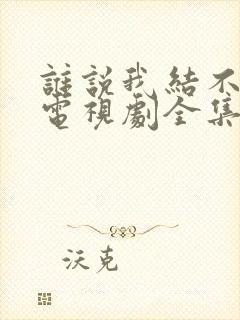 誰說我結不
電視劇全集
沃克